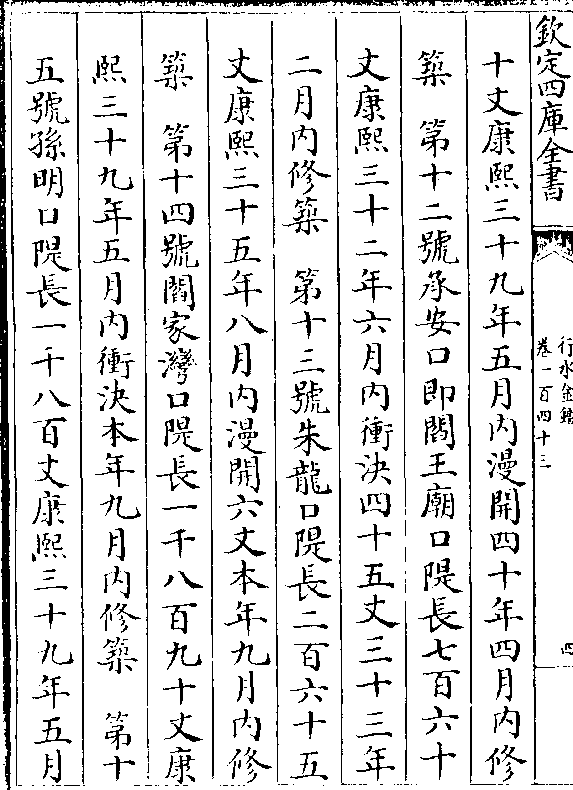 欽定四庫全書
行水金鑑
卷一百四十三
四
十丈康熙三十九年五月內漫開四十年四月內修
築　第十二號承安口即閻王廟口隄長七百六十
丈康熙三十二年六月內衝決四十五丈三十三年
二月內修築　第十三號朱龍口隄長二百六十五
丈康熙三十五年八月內漫開六丈本年九月內修
築　第十四號閻家灣口隄長一千八百九十丈康
熙三十九年五月內衝決本年九月內修築　第十
五號孫明口隄長一千八百丈康熙三十九年五月